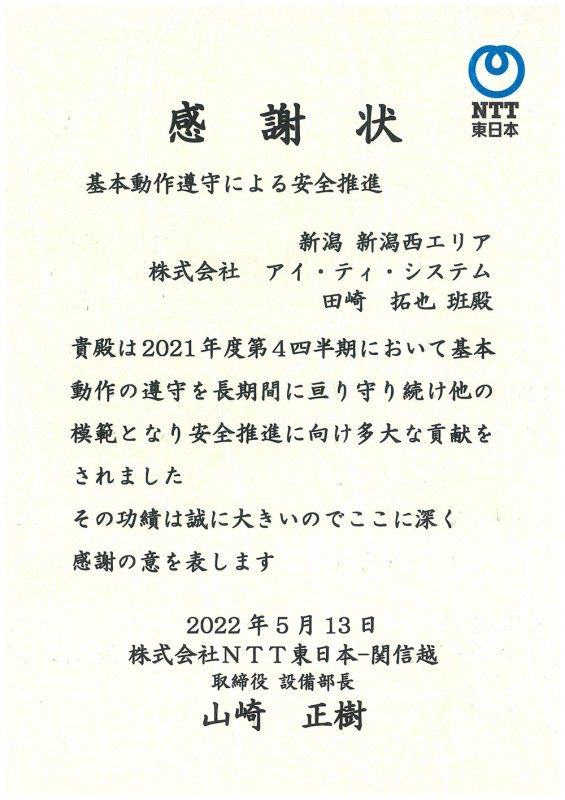 NTT
東日本
感 謝 状
基本動作遵守による安全推進
新潟 新潟西エリア
株式会社 アイ・ティ・システム
田崎 拓也 班殿
貴殿は2021年度第4四半期において基本
動作の遵守を長期間に亘り守り続け他の
模範となり安全推進に向け多大な貢献を
されました
その功績は誠に大きいのでここに深く
感謝の意を表します
2022年5月13日
株式会社NTT東日本-関信越
取締役 設備部長
山崎 正樹